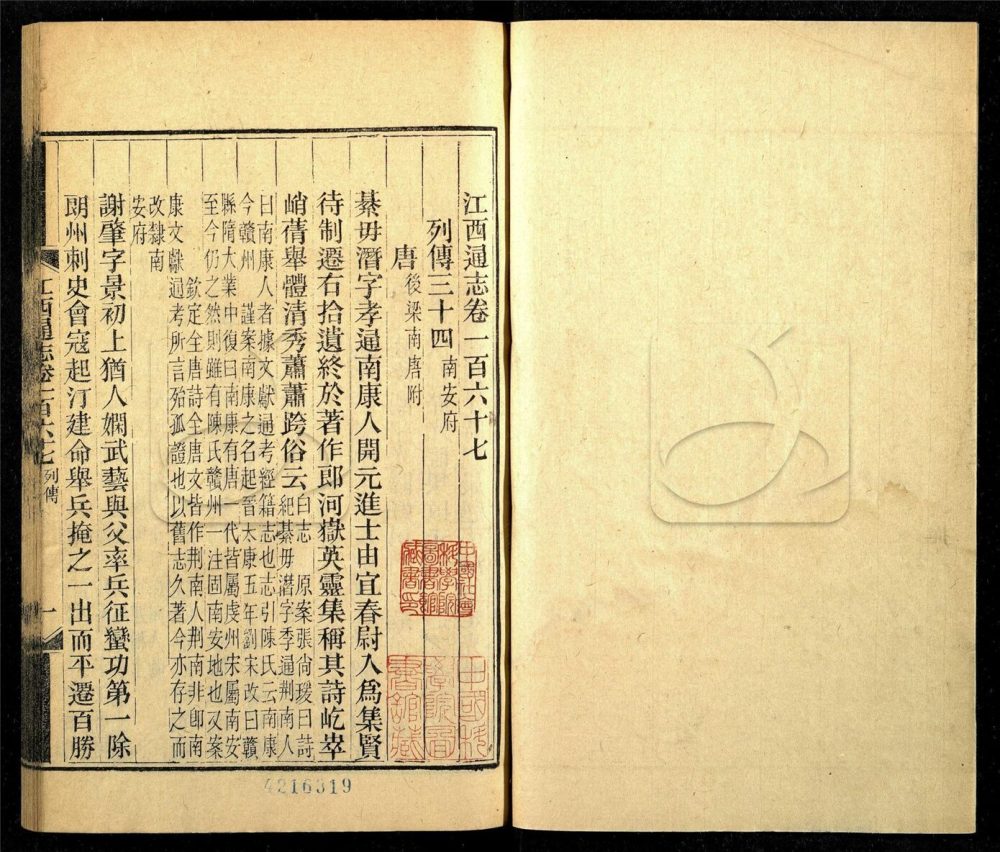 江西通志卷一百六十七
列傳三十四 南安府
唐 後梁南唐附
綦毋潛字孝通南康人開元進士由宜春尉入爲集賢
待制遷右拾遺終於著作郎河嶽英靈集稱其詩屹崒
峭蒨舉體清秀蕭蕭跨俗云
白志 原案張尙瑗曰詩
紀綦毋潛字季通荆南人
曰南康人者據文獻通考經籍志也志引陳氏云南康
今贛州 謹案南康之名起晉太康五年劉宋改曰贛
縣隋大業中復曰南康有唐一代皆屬虔州宋屬南安
至今仍之然則雖有陳氏贛州一注固南安地也又案
欽定全唐詩全唐文皆作荆南人荆南非卽南
康文獻通考所言殆孤證也以舊志久著今亦存之而
改隸南
安府
謝肇字景初上猶人嫺武藝與父率兵征蠻功第一除
朗州刺史會寇起汀建命舉兵掩之一出而平遷百勝
江西通志卷一百六十七 列傳 一
中國社會科學院圖書館藏書印
中國科學院圖書館藏
4216319